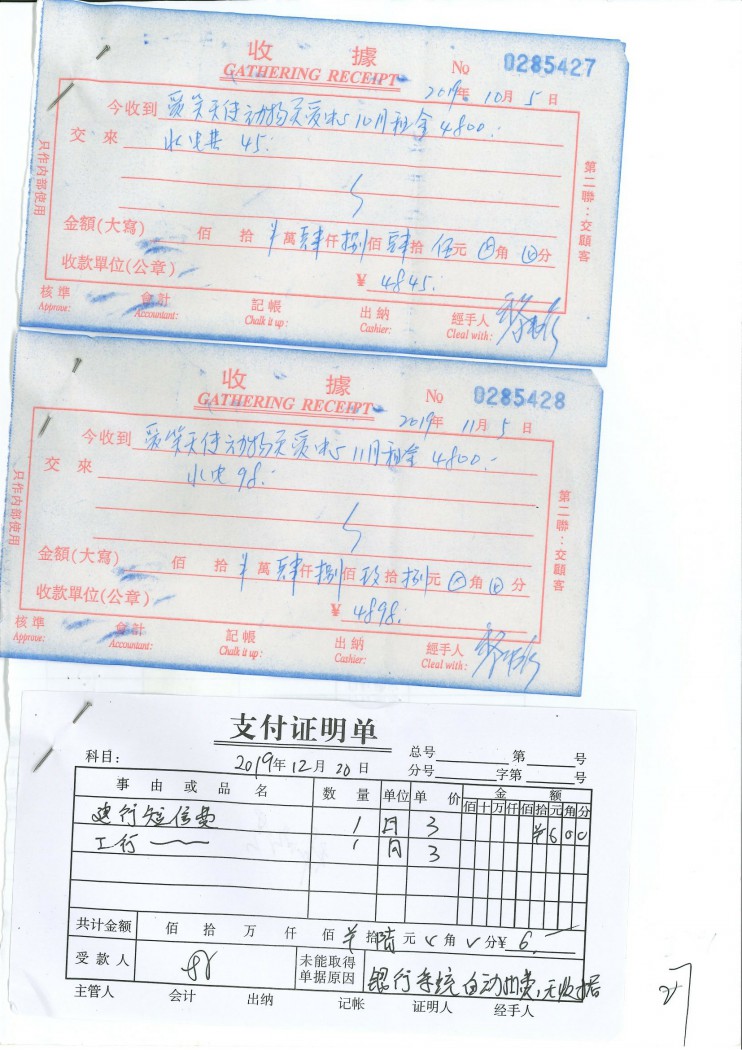 收 據
GATHERING RECEIPT
No 0285427
2019年 10月 5日
今收到 爱笑天使动物关爱中心10月租金4800.-
交 來 水电共 45.-
金額(大寫) 佰 拾 ¥萬肆仟捌佰肆拾伍元 角 分
收款單位(公章)
¥ 4845.-
核準 會計 記帳 出納 經手人
Approve: Accountant: Chalk it up: Cashier: Cleal with:
只作內部使用
第二聯：交顧客
收 據
GATHERING RECEIPT
No 0285428
2019年 11月 5日
今收到 爱笑天使动物关爱中心11月租金4800.-
交 來 水电 98.-
金額(大寫) 佰 拾 ¥萬肆仟捌佰玖拾捌元 角 分
收款單位(公章)
¥ 4898.-
核準 會計 記帳 出納 經手人
Approve: Accountant: Chalk it up: Cashier: Cleal with:
只作內部使用
第二聯：交顧客
支付证明单
科目： 2019年12月20日 总号 第 号
分号 字第 号
事 由 或 品 名 数 量 单位 单 价 金 额
佰 十 万 仟 佰 拾 元 角 分
建行短信费 1 月 3 ¥ 6 0 0
工行 —— 1 月 3
共计金额 佰 拾 万 仟 佰 ¥ 拾 陆 元 角 分 ¥ 6.
受款人 未能取得单据原因 银行系统自动扣费，无收据
主管人 会计 出纳 记帐 证明人 经手人
27